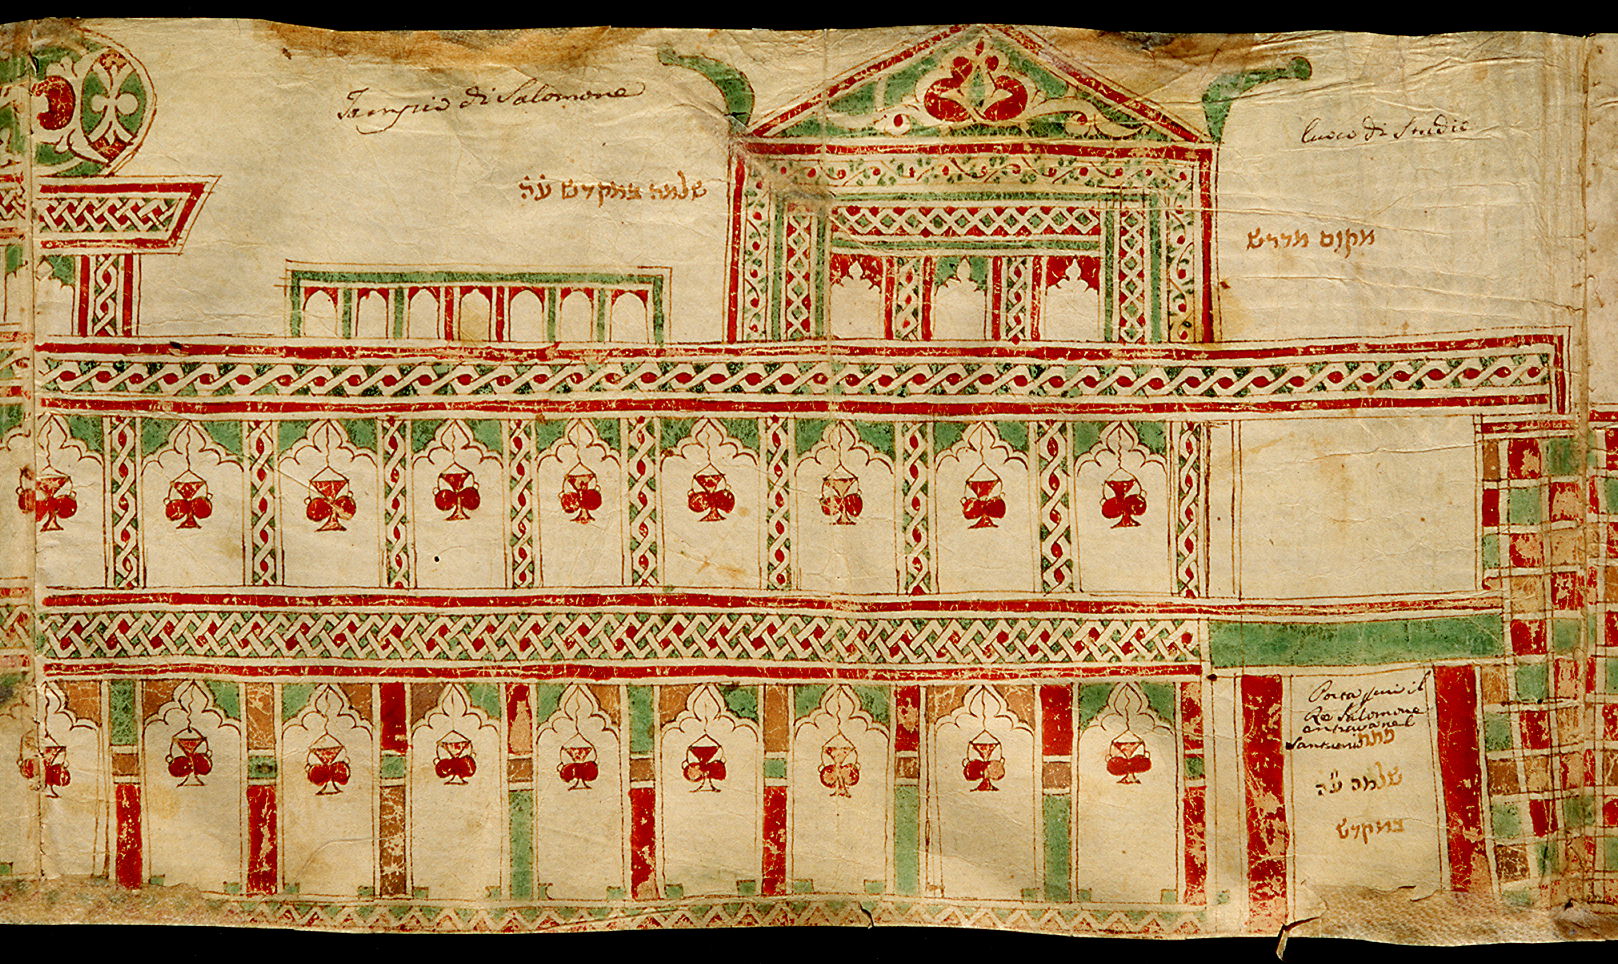 Tempio di Salomone
שלמה במקדש ע״ה
luoco di Studio
מקום מדרש
Porta per il
Re Salomone
entrava nel
Santuario
פתח
שלמה ע״ה
במקדש